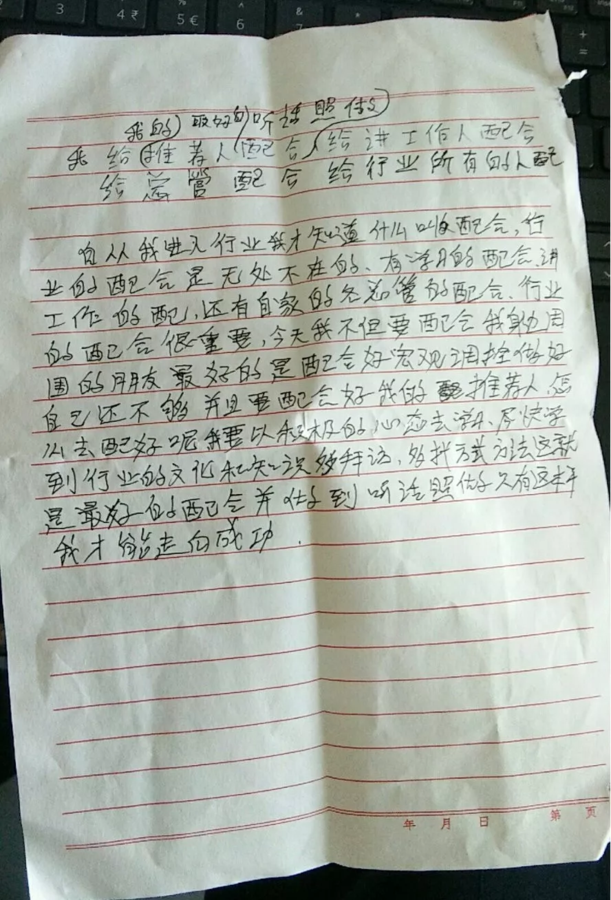 我的 最好的 听话照做
我给推荐人配合 给讲工作人配合
给总管配合 给行业所有的人配
自从我进入行业我才知道什么叫做配合,行
业的配合是无处不在的、有学习的配合,讲
工作的配,还有自家的总管的配合、行业
的配合很重要,今天我不但要配合我身边周
围的朋友最好的是配合好宏观调控做好
自己还不够并且要配合好我的推荐人怎
么去配好呢我要以积极的心态去学习,尽快学
到行业的文化和知识多拜访,多找方式方法这就
是最好的配合并做到听话照做只有这样
我才能走向成功.
年 月 日 第 页